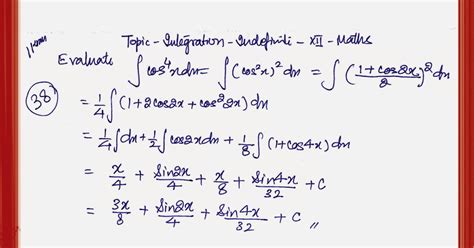 Topic - Integration - Indefinite - XII - Maths
Evaluate ∫cos⁴x dx = ∫(cos²x)² dx = ∫((1+cos2x)/2)² dx
38
= 1/4 ∫(1+2cos2x+cos²2x) dx
= 1/4 ∫dx + 1/2 ∫cos2x dx + 1/8 ∫(1+cos4x) dx
= x/4 + Sin2x/4 + x/8 + Sin4x/32 + C
= 3x/8 + Sin2x/4 + Sin4x/32 + C //